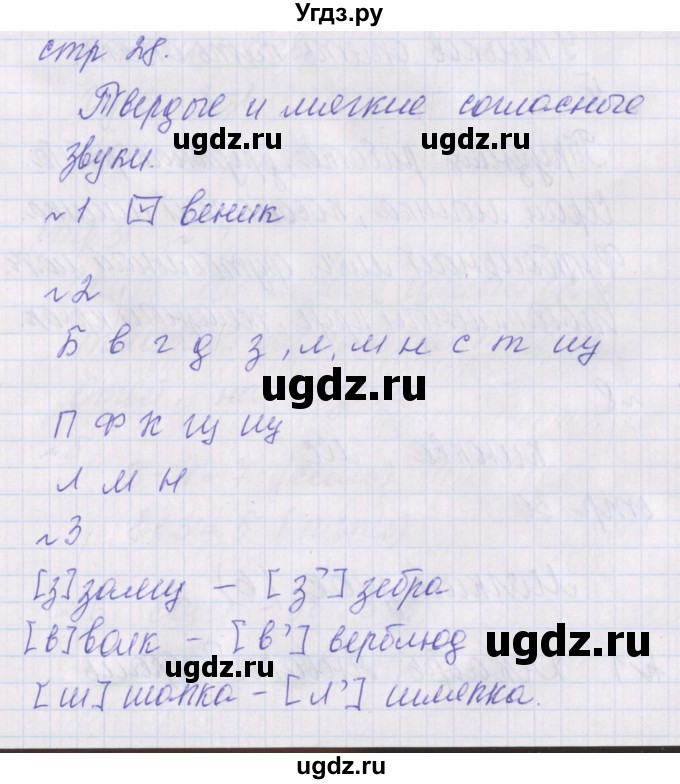 Угдз.ру
стр 28.
Твердые и мягкие согласные
ugdz.ru ugdz.ru
звуки.
№1 веник
№2
Б в г д з, л, м н с т щ
ugdz.ru
П Ф К щ щ
Л М Н
№3
[з] - [з'] зебра
[в] волк - [в'] верблюд
ugdz.ru ugdz.ru
[ш] шапка - [л'] шляпка.
ugdz.ru ugdz.ru